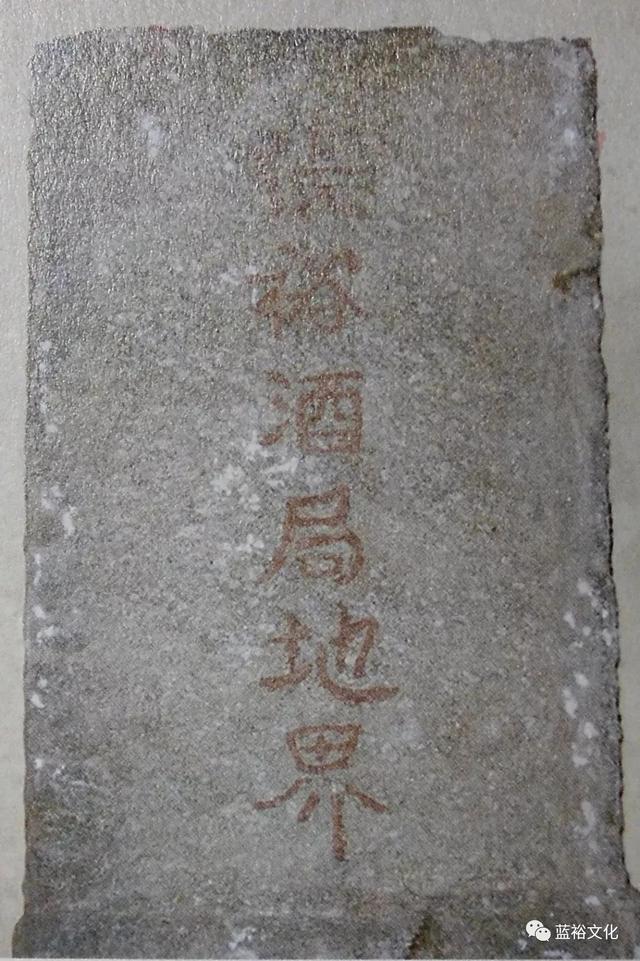 裕酒局地界
蓝裕文化